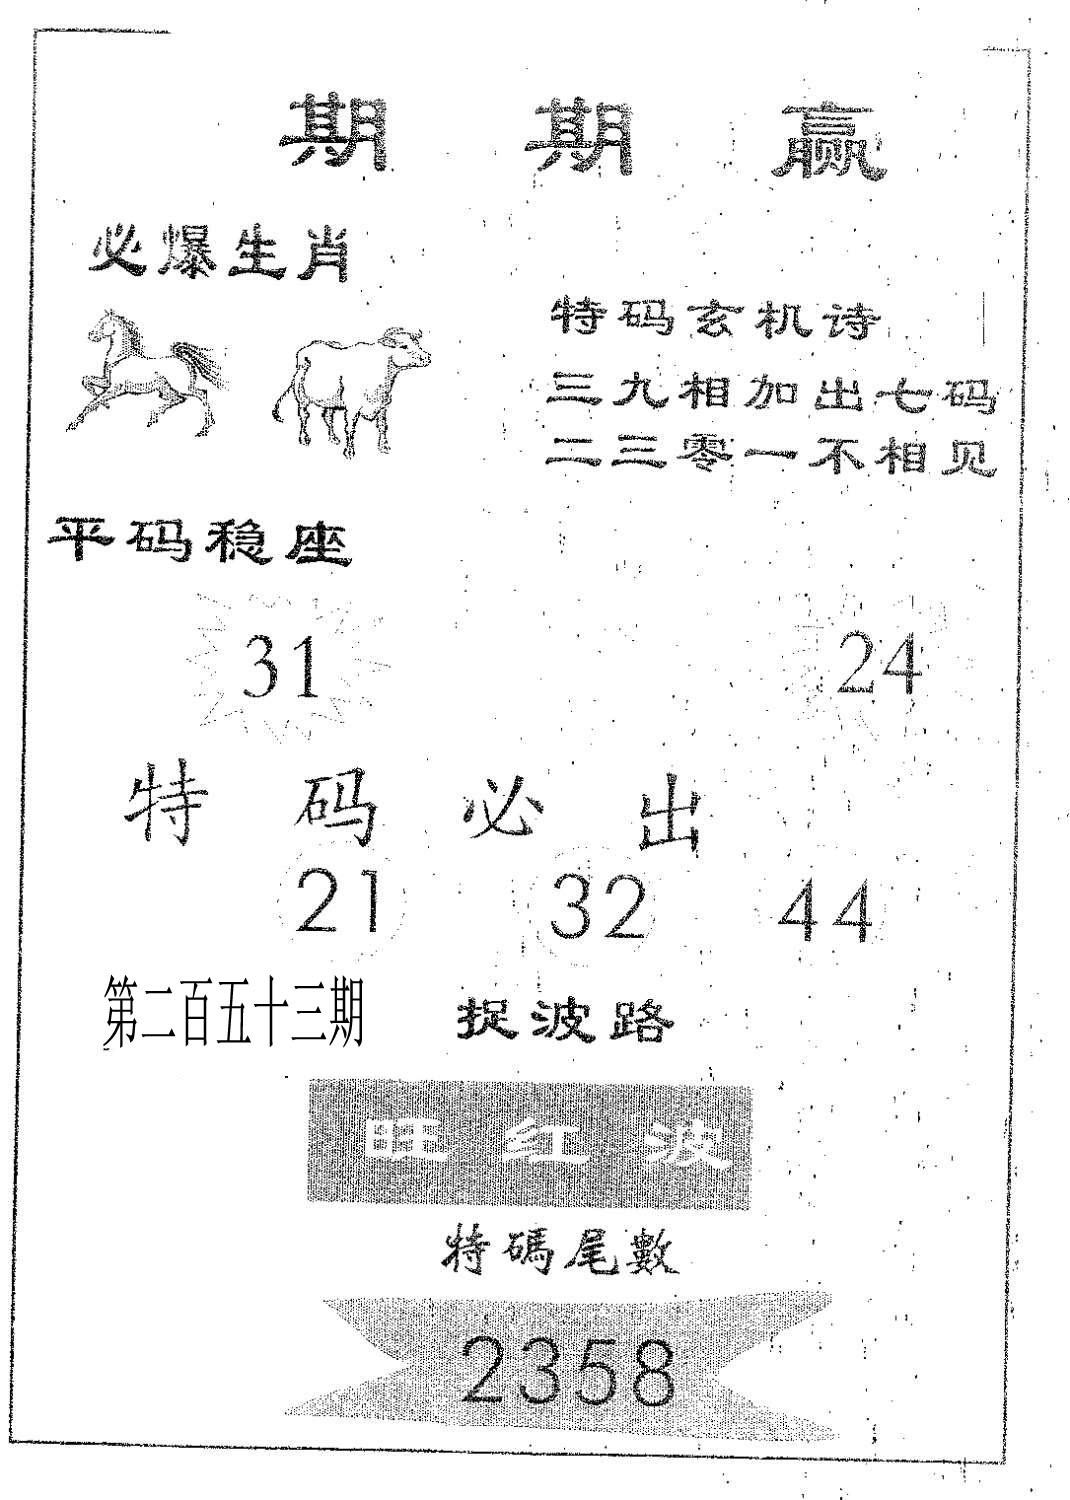 期期赢
必爆生肖
特码玄机诗
三九相加出七码
二三零一不相见
平码稳座
31 24
特码必出
21 32 44
第二百五十三期 捉波路
旺红波
特碼尾數
2358